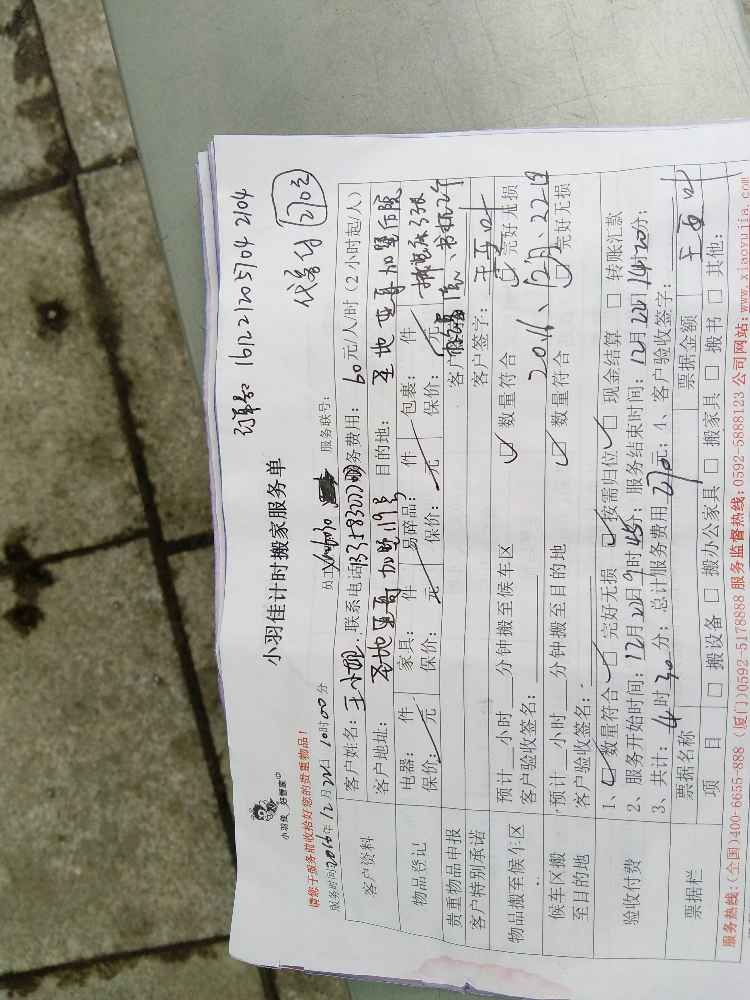 订单号 161221205104 2104
代客付 2103
小羽佳计时搬家服务单
小羽佳 好管家
请您于服务前收拾好您的贵重物品！
服务时间2016年12月22日10时00分 员工 服务联号：
客户资料 客户姓名：王小姐 联系电话 服务费用：60元/人/时（2小时起/人）
客户地址：圣地亚哥加盟 目的地：圣地亚哥加盟
物品登记 电器： 件 家具： 件 易碎品： 件 包裹： 件
保价： 元 保价： 元 保价： 元 保价： 元
贵重物品申报 客户签字：
客户特别承诺 客户签字：
物品搬至候车区 预计__小时__分钟搬至候车区 数量符合 完好无损
客户验收签名： 2016、12月、22日
候车区搬至目的地 预计__小时__分钟搬至目的地 数量符合 完好无损
客户验收签名：
验收付费 1、数量符合 完好无损 按需归位 现金结算 转账汇款
2、服务开始时间：12月22日9时45分；服务结束时间：12月22日14时20分；
3、共计：4时30分；总计服务费用270元；4、客户验收签字：
票据栏 票据名称 票据金额
项 目 搬设备 搬办公家具 搬家具 搬书 其他：
服务热线：（全国）400-6655-888 （厦门）0592-5178888 服务监督热线：0592-5888123 公司网站：www.xiaoyujia.com